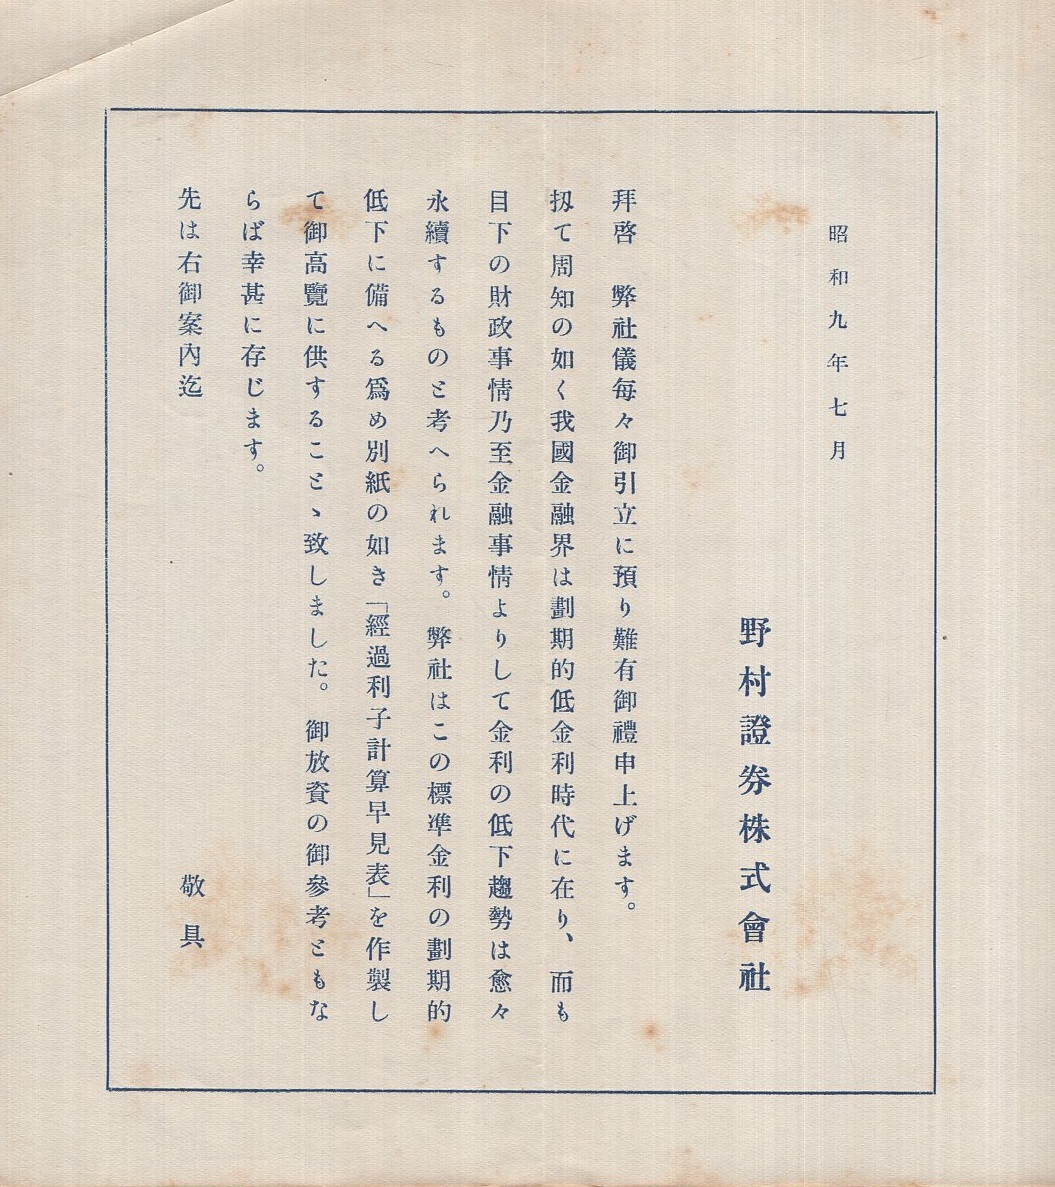 昭和九年七月
野村證券株式會社
拜啓　弊社儀每々御引立に預り難有御禮申上げます。
扨て周知の如く我國金融界は劃期的低金利時代に在り、而も
目下の財政事情乃至金融事情よりして金利の低下趨勢は愈々
永續するものと考へられます。弊社はこの標準金利の劃期的
低下に備へる爲め別紙の如き「經過利子計算早見表」を作製し
て御高覽に供することゝ致しました。御放資の御參考ともな
らば幸甚に存じます。
先は右御案內迄　敬具